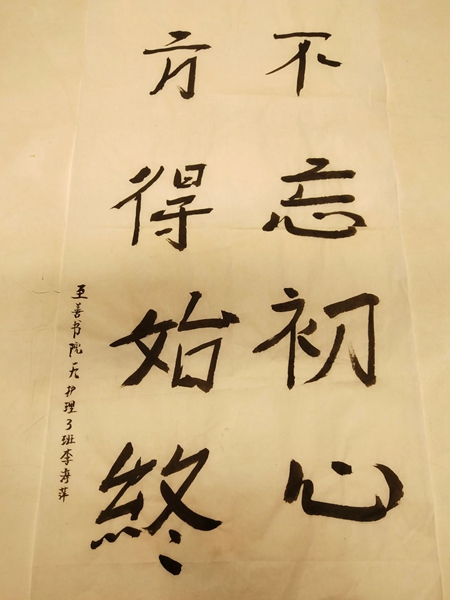 不忘初心
方得始終
至善书院 护理3班李寿萍